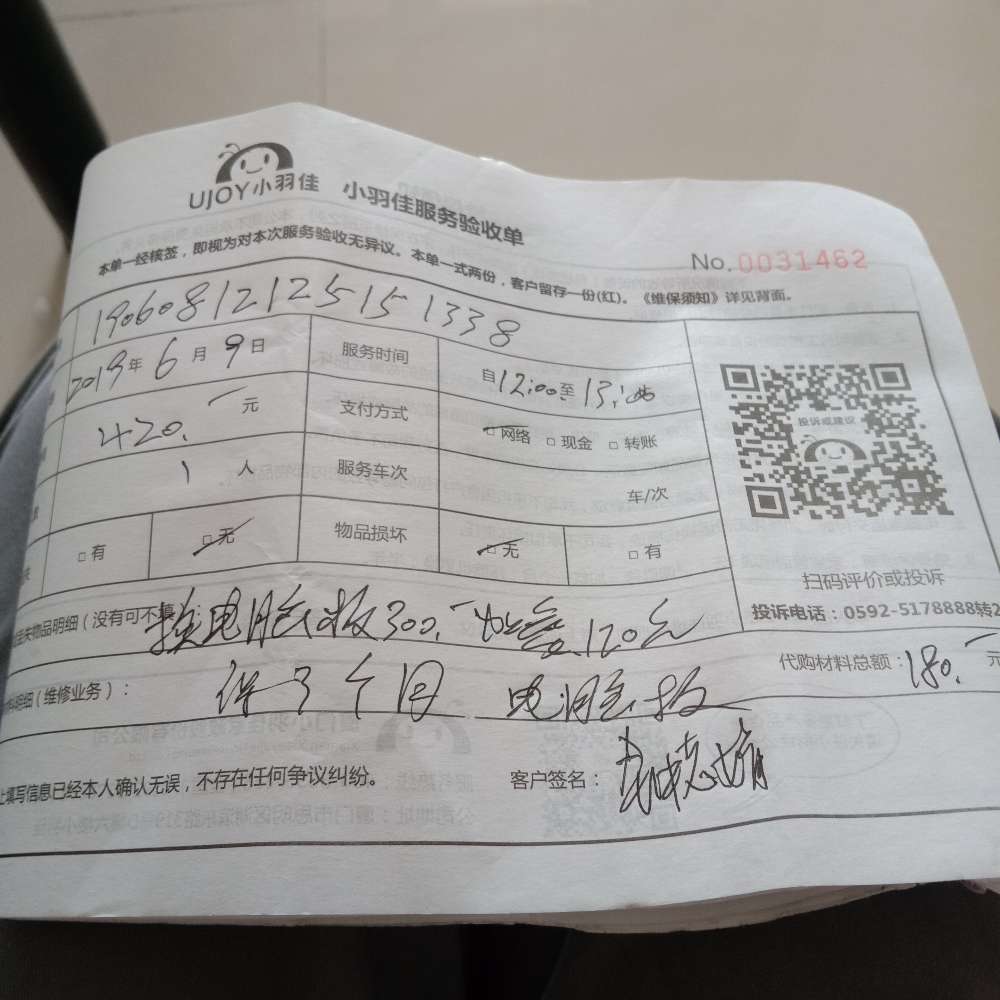 UJOY小羽佳 小羽佳服务验收单
No.0031462
本单一经核签，即视为对本次服务验收无异议。本单一式两份，客户留存一份(红)。《维保须知》详见背面。
1906081212515151338
2019年6月9日 服务时间 自12:00至13:
420. 元 支付方式 网络 现金 转账
1 人 服务车次 车/次
有 无 物品损坏 无 有
投诉或建议
扫码评价或投诉
投诉电话：0592-5178888转2
失物品明细(没有可不填)：换电脑板300. 120元
代购材料总额：180. 元
明细(维修业务)：保3个月 电脑板
填写信息已经本人确认无误，不存在任何争议纠纷。 客户签名：